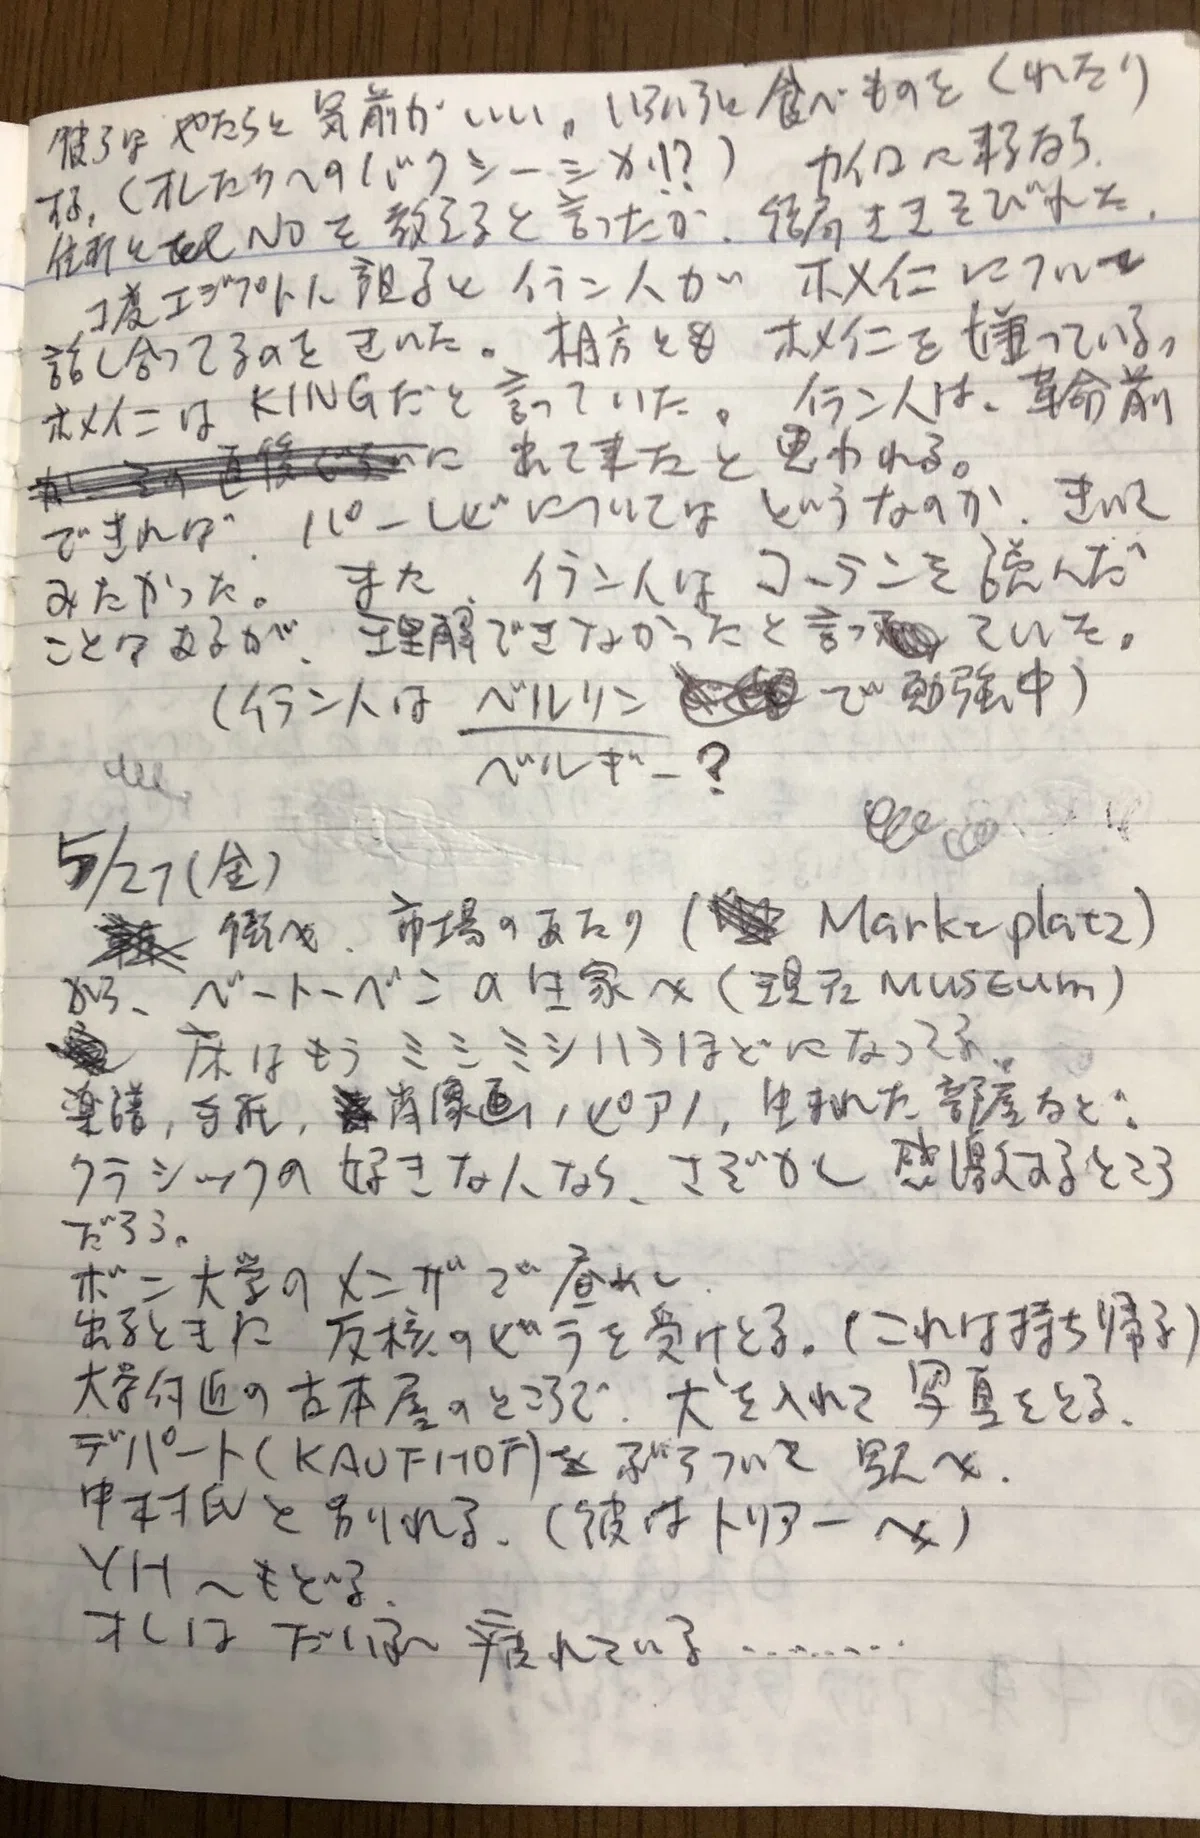 彼らはやたらと気前がいい。いろいろと食べものをくれたり
する。(オレたちへのバクシーシか!?) カイロに来るなら、
住所とtel NOを教えると言ったが、結局ききそびれた。
1度エジプト人 とイラン人が ホメイニについて
話し合ってるのをきいた。相方とも ホメイニを嫌っている。
ホメイニは KINGだと言っていた。イラン人は、革命前
か その直後ぐらいに 出て来たと思われる。
できれば、パーレビについてはどうなのか、きいて
みたかった。また、イラン人はコーランを読んだ
ことはあるが、理解できなかったと言っていた。
(イラン人は ベルリン で勉強中)
ベルギー?
5/27(金)
街へ、市場のあたり ( Marketplatz)
から、ベートーベンの生家へ (現在 MUSEUM)
床はもう ミシミシいうほどになってる。
楽譜, 手紙, 肖像画, ピアノ, 生まれた部屋など。
クラシックの好きな人なら、さぞかし 感激するところ
だろう。
ボン大学のメンザで昼めし
出るときに 反核のビラを受けとる。(これは持ち帰る)
大学付近の古本屋のところで、犬を入れて写真をとる。
デパート(KAUFHOF)をぶらついて 駅へ.
中村氏と別れる。(彼はトリアーへ)
YHへもどる.
オレは だいぶ 疲れている ………